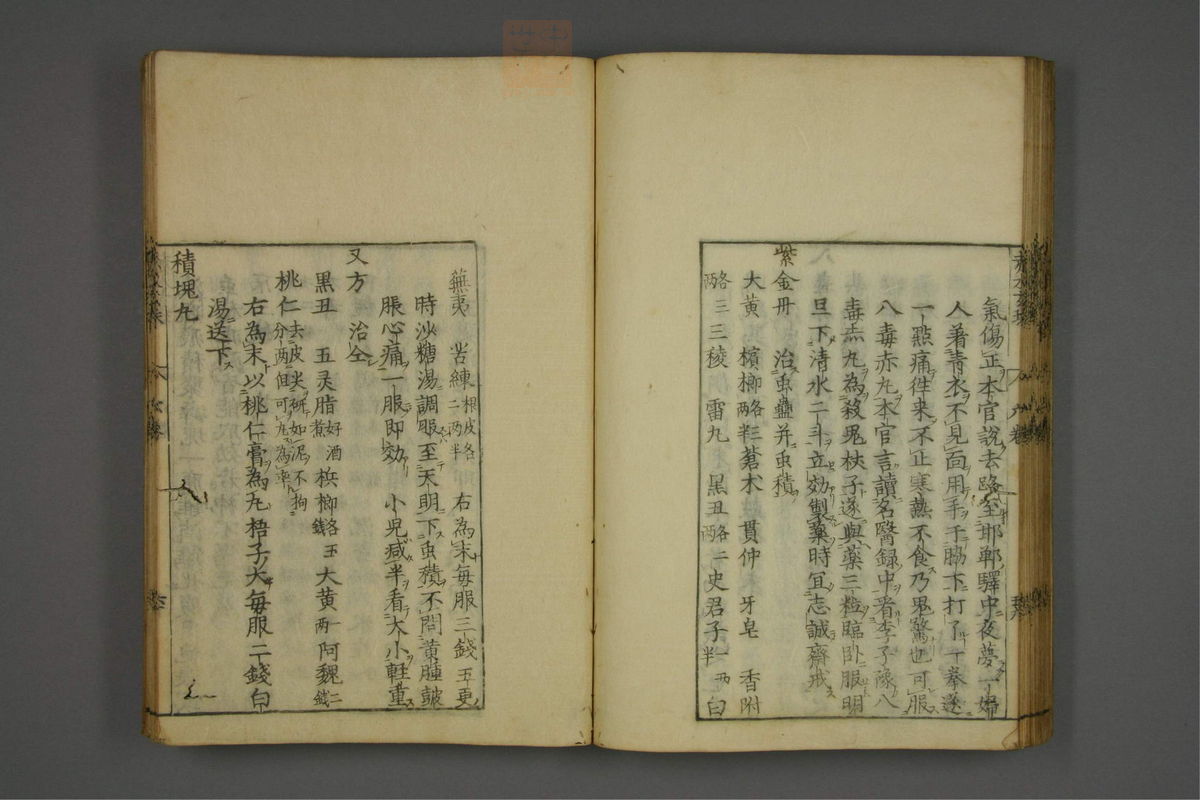 氣傷正本官說去路至邯鄲驛中夜夢一婦
人着青衣不見面用手于脇下打了一拳遂
一點痛徃来不止寒熱不食乃鬼驚也可服
八毒赤丸本官言讀名醫録中看李子豫八
毒赤丸為殺鬼杖子遂與藥三粒臨卧服明
旦下清水二斗立効製藥時冝志誠齋戒
紫金丹 治虫蠱并虫積
大黄 檳榔各三兩半 蒼术 貫仲 牙皂 香附
各三兩 三稜 雷丸 黒丑各二兩 史君子一兩半 白
蕪荑 苦練根皮各二兩半 右為末毎服三錢五更
時沙糖湯調服至天明下虫積不問黄腫皷
脹心痛一服即効 小児减半看大小軽重
又方 治仝
黒丑 五灵脂好酒煮 梹榔各五錢 大黄一兩 阿魏二錢
桃仁去皮尖研如泥不拘分两但可丸為率
右為末以桃仁膏為丸梧子大毎服二錢白
湯送下
積塊丸